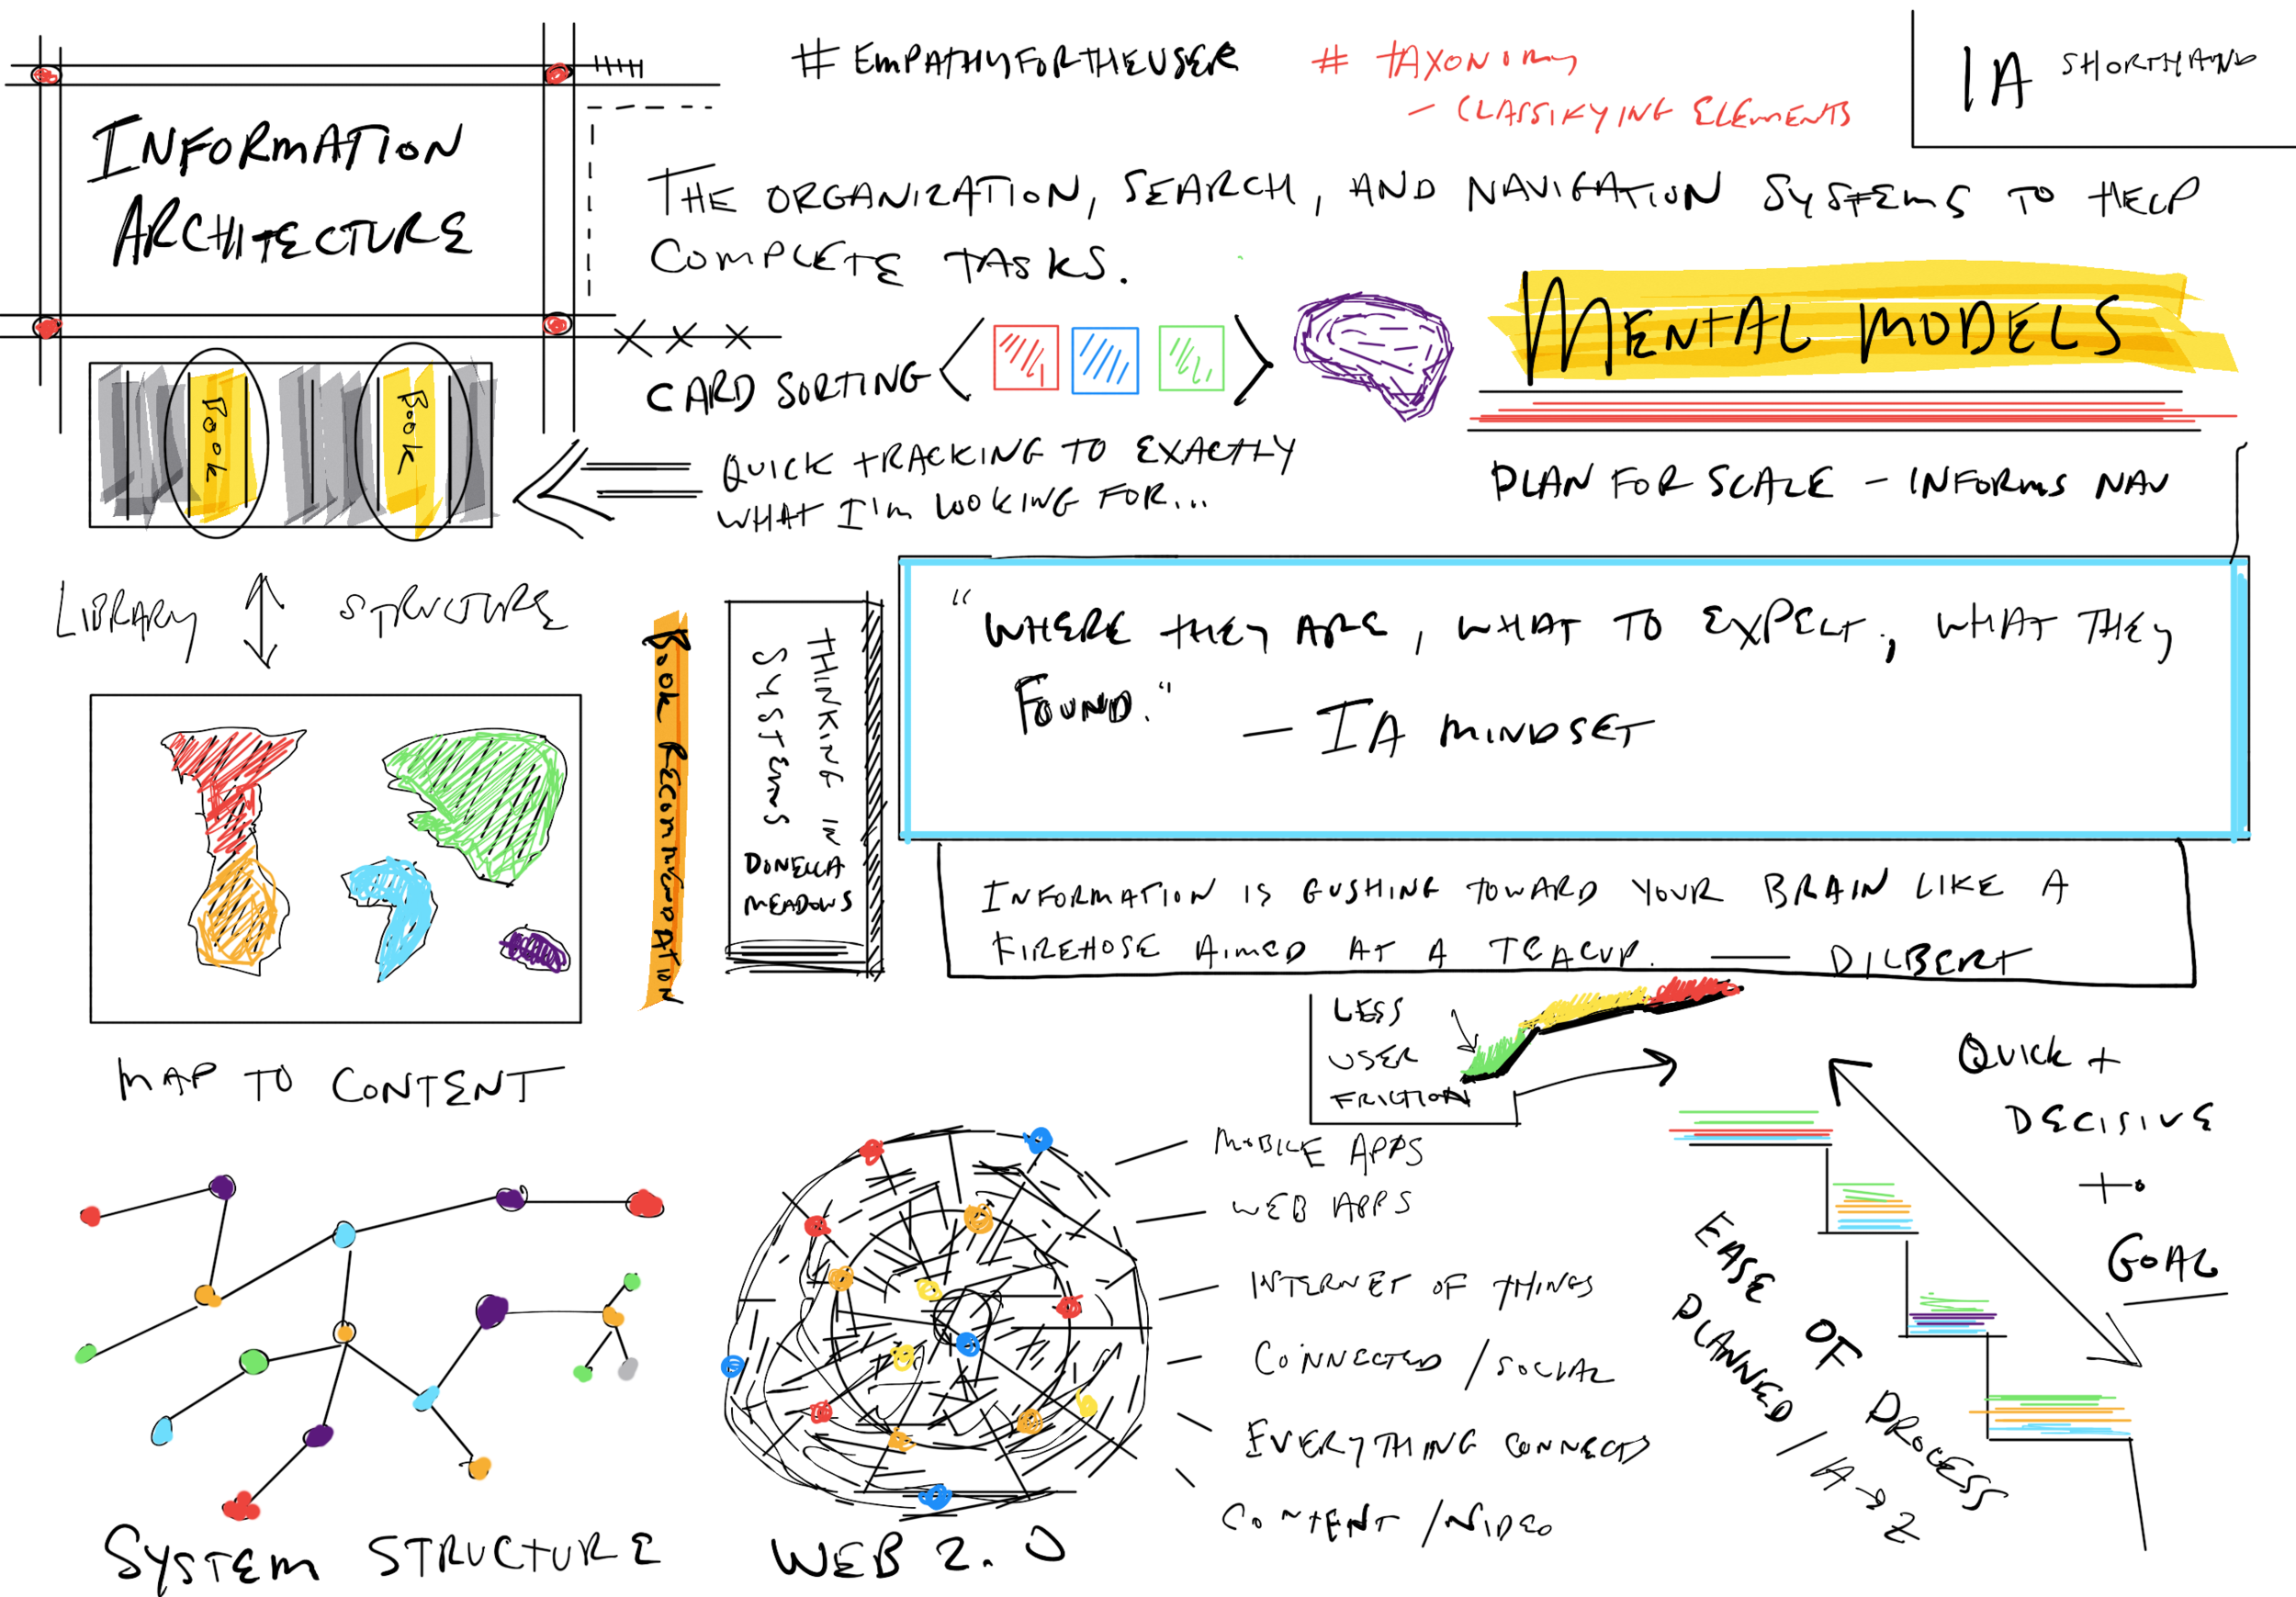 INFORMATION
ARCHITECTURE
# EMPATHYFORTHEUSER
# TAXONOMY
- CLASSIFYING ELEMENTS
IA SHORTHAND
THE ORGANIZATION, SEARCH, AND NAVIGATION SYSTEMS TO HELP
COMPLETE TASKS.
CARD SORTING
MENTAL MODELS
Book
Book
QUICK TRACKING TO EXACTLY
WHAT I'M LOOKING FOR...
PLAN FOR SCALE - INFORMS NAV
LIBRARY STRUCTURE
BOOK RECOMMENDATION
THINKING IN
SYSTEMS
DONELLA
MEADOWS
"WHERE THEY ARE, WHAT TO EXPECT, WHAT THEY
FOUND." - IA MINDSET
INFORMATION IS GUSHING TOWARD YOUR BRAIN LIKE A
FIREHOSE AIMED AT A TEACUP. — DILBERT
MAP TO CONTENT
LESS
USER
FRICTION
QUICK +
DECISIVE
to
GOAL
EASE OF PROCESS
PLANNED / A → Z
MOBILE APPS
WEB APPS
INTERNET OF THINGS
CONNECTED / SOCIAL
EVERYTHING CONNECTS
CONTENT / VIDEO
SYSTEM STRUCTURE
WEB 2.0